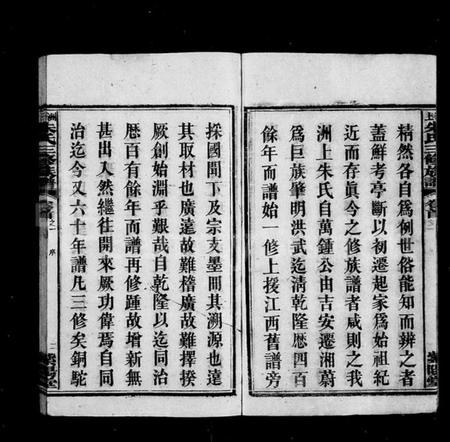 精然各自爲例世俗能知而辨之者
蓋鮮考亭斷以初遷起家爲始祖紀
近而存眞今之修族譜者咸則之我
洲上朱氏自萬鍾公由吉安遷湘蔚
爲巨族肇明洪武迄淸乾隆歷四百
餘年而譜始一修上援江西舊譜旁
採國間下及宗支墨冊其溯源也遠
其取材也廣遠故難稽廣故難擇揆
厥創始淵乎艱哉自乾隆以迄同治
歷百有餘年而譜再修踵故增新無
甚出入然繼往開來厥功偉焉自同
治迄今又六十年譜凡三修矣銅駝
朱氏三修族譜
序